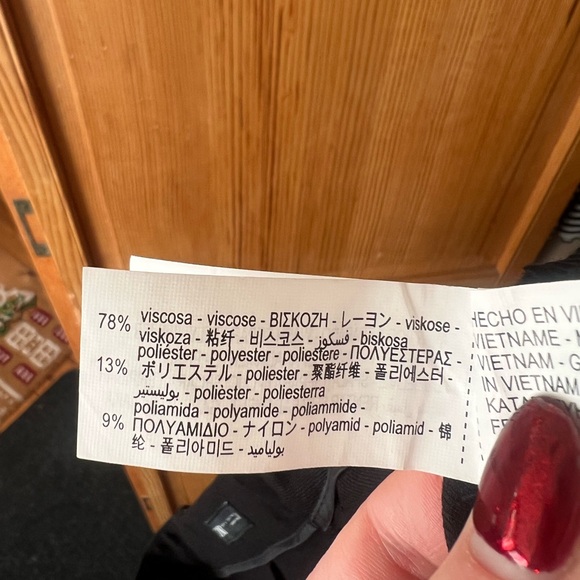 78% viscosa - viscose - ΒΙΣΚΟΖΗ - レーヨン - viskose -
viskoza - 粘纤 - 비스코스 - فسكوز - biskosa
13% poliéster - polyester - poliestere - ΠΟΛΥΕΣΤΕΡΑΣ -
ポリエステル - poliester - 聚酯纤维 - 폴리에스터 -
بوليستير - polièster - poliesterra
9% poliamida - polyamide - poliammide -
ΠΟΛΥΑΜΙΔΙΟ - ナイロン - polyamid - poliamid - 锦
纶 - 폴리아미드 - بولياميد
HECHO EN VI
VIETNAME - M
VIETNAM - G
IN VIETNAM